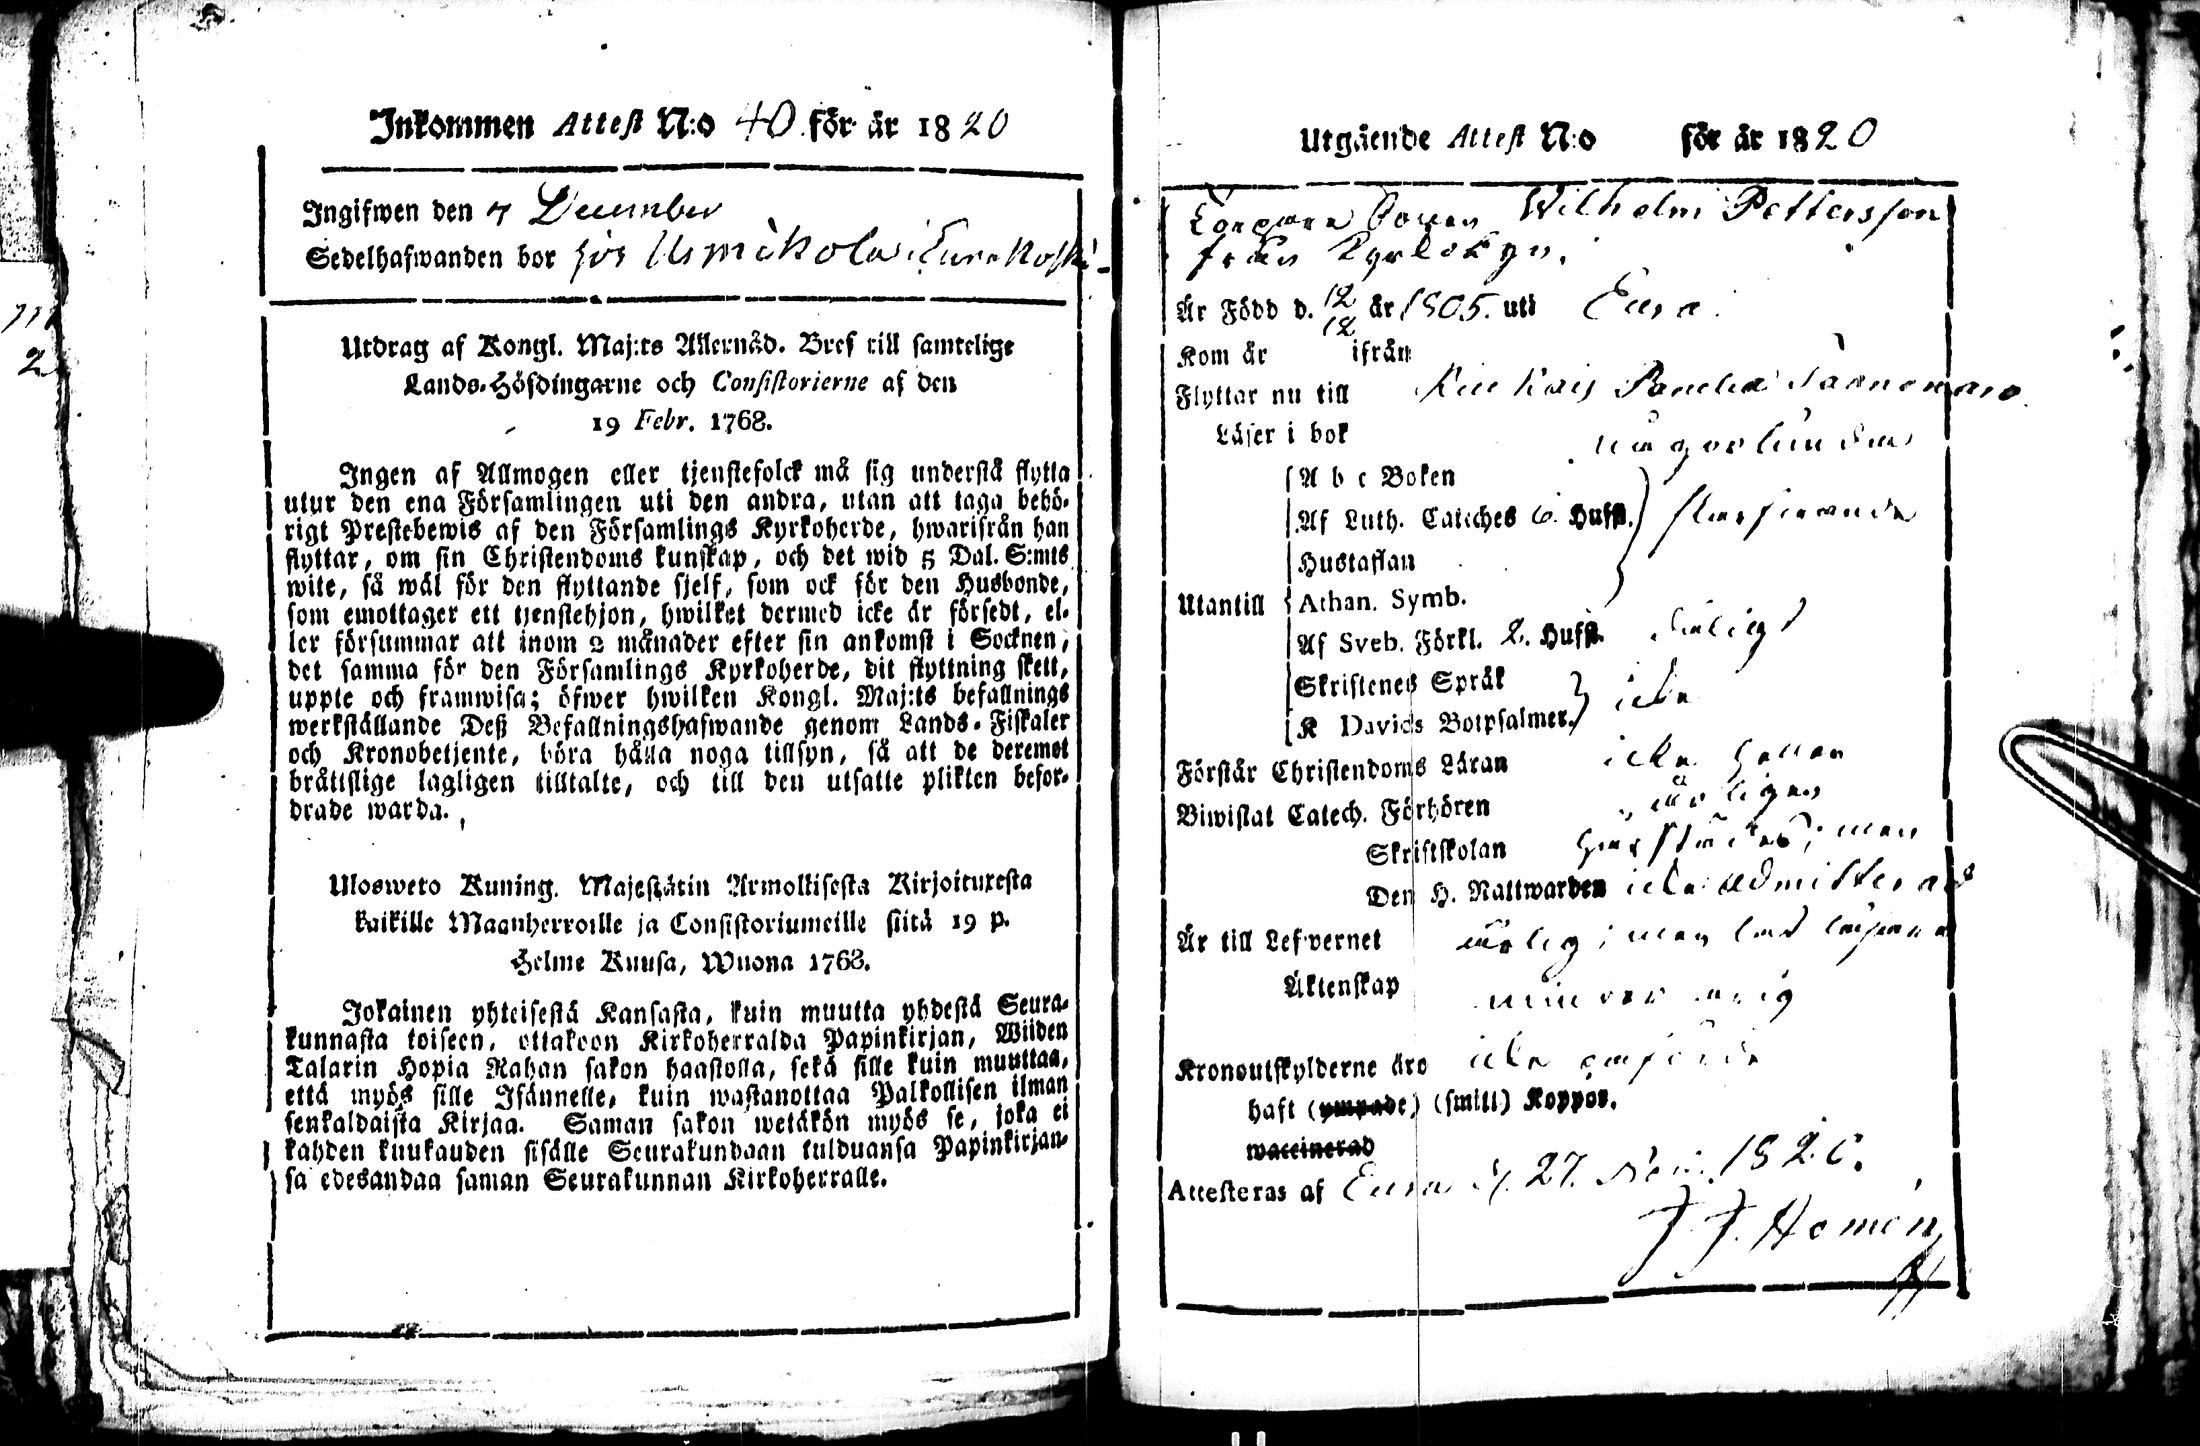 Inkommen Attest N:o 40 för år 1820
Ingifwen den 7 December
Sedelhafwanden bor hos Usmikola i Eura Koski
Utdrag af Kongl. Maj:ts Allernåd. Bref till samtelige
Lands-Höfdingarne och Consistorierne af den
19 Febr. 1768.
Ingen af Allmogen eller tjenstefolck må sig understå flytta
utur den ena Församlingen uti den andra, utan att taga behö-
rigt Prestebewis af den Församlings Kyrkoherde, hwarifrån han
flyttar, om sin Christendoms kunskap, och det wid 5 Dal. S:mts
wite, så wäl för den flyttande sjelf, som ock för den Husbonde,
som emottager ett tjenstehjon, hwilket dermed icke är försedt, el-
ler försummar att inom 2 månader efter sin ankomst i Socknen,
det samma för den Församlings Kyrkoherde, dit flyttning skett,
uppte och framwisa; öfwer hwilken Kongl. Maj:ts befallnings
werkställande Deß Befallningshafwande genom Lands-Fiskaler
och Kronobetjente, böra hålla noga tillsyn, så att de deremot
bråttslige lagligen tilltalte, och till den utsatte plikten befor-
drade warda.
Ulosweto Kuning. Majestätin Armollisesta Kirjoituxesta
kaikille Maanherroille ja Consistoriumeille siitä 19 p.
Helme Kuusa, Wuona 1768.
Jokainen yhteisestä Kansasta, kuin muutta yhdestä Seura-
kunnasta toiseen, ottakoon Kirkoherralda Papinkirjan, Wiiden
Talarin Hopia Rahan sakon haastolla, sekä sille kuin muuttaa,
että myös sille Isännelle, kuin wastanottaa Palkollisen ilman
senkaldaista Kirjaa. Saman sakon wetäkön myös se, joka ei
kahden kuukauden sisälle Seurakundaan tulduansa Papinkirjan-
sa edesandaa saman Seurakunnan Kirkoherralle.
Utgående Attest N:o för år 1820
Torpare Sonen Wilhelm Pettersson
från Kyrkobyn.
Är Född d. 12/12 år 1805. uti Eura.
Kom år ifrån
Flyttar nu till Kiukais Panelia
Läser i bok någorlunda
A b c Boken
Af Luth. Catéches 6. Hufst.
Hustaflan
Utantill Athan. Symb.
Af Sveb. Förkl. 2. Hufst.
Skriftenes Språk
K Davids Botpsalmer. icke
Förstår Christendoms Läran icke heller
Biwistat Catech. Förhören årligen
Skriftskolan härstädes, men
Den H. Nattwarden icke admitterad
Är till Lefwernet ärlig; men
Äktenskap minderårig
Kronoutskylderne äro icke
haft (ympade) (smitt) Koppor.
waccinerad
Attesteras af Eura d. 27. Nov. 1820.
J. J. Homén